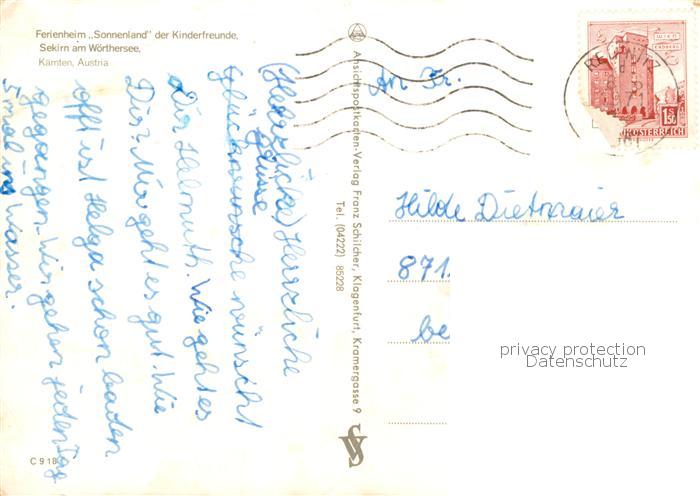 Ferienheim „Sonnenland" der Kinderfreunde,
Sekirn am Wörthersee,
Kärnten, Austria
(Herzliche) Herzliche
Grüsse
Glückwünsche wünscht
dir Helmuth. Wie geht es
Dir? Mir geht es gut. Wie
oft ist Helga schon baden
gegangen. Wir gehen jeden Tag
5 mal ins Wasser.
C 9 18
Ansichtspostkarten-Verlag Franz Schilcher, Klagenfurt, Kramergasse 9
Tel. (04222) 85228
WIEN
ERDBERG
1.50
OSTERREICH
An Fr.
Hilde Dietmaier
871
be
privacy protection
Datenschutz